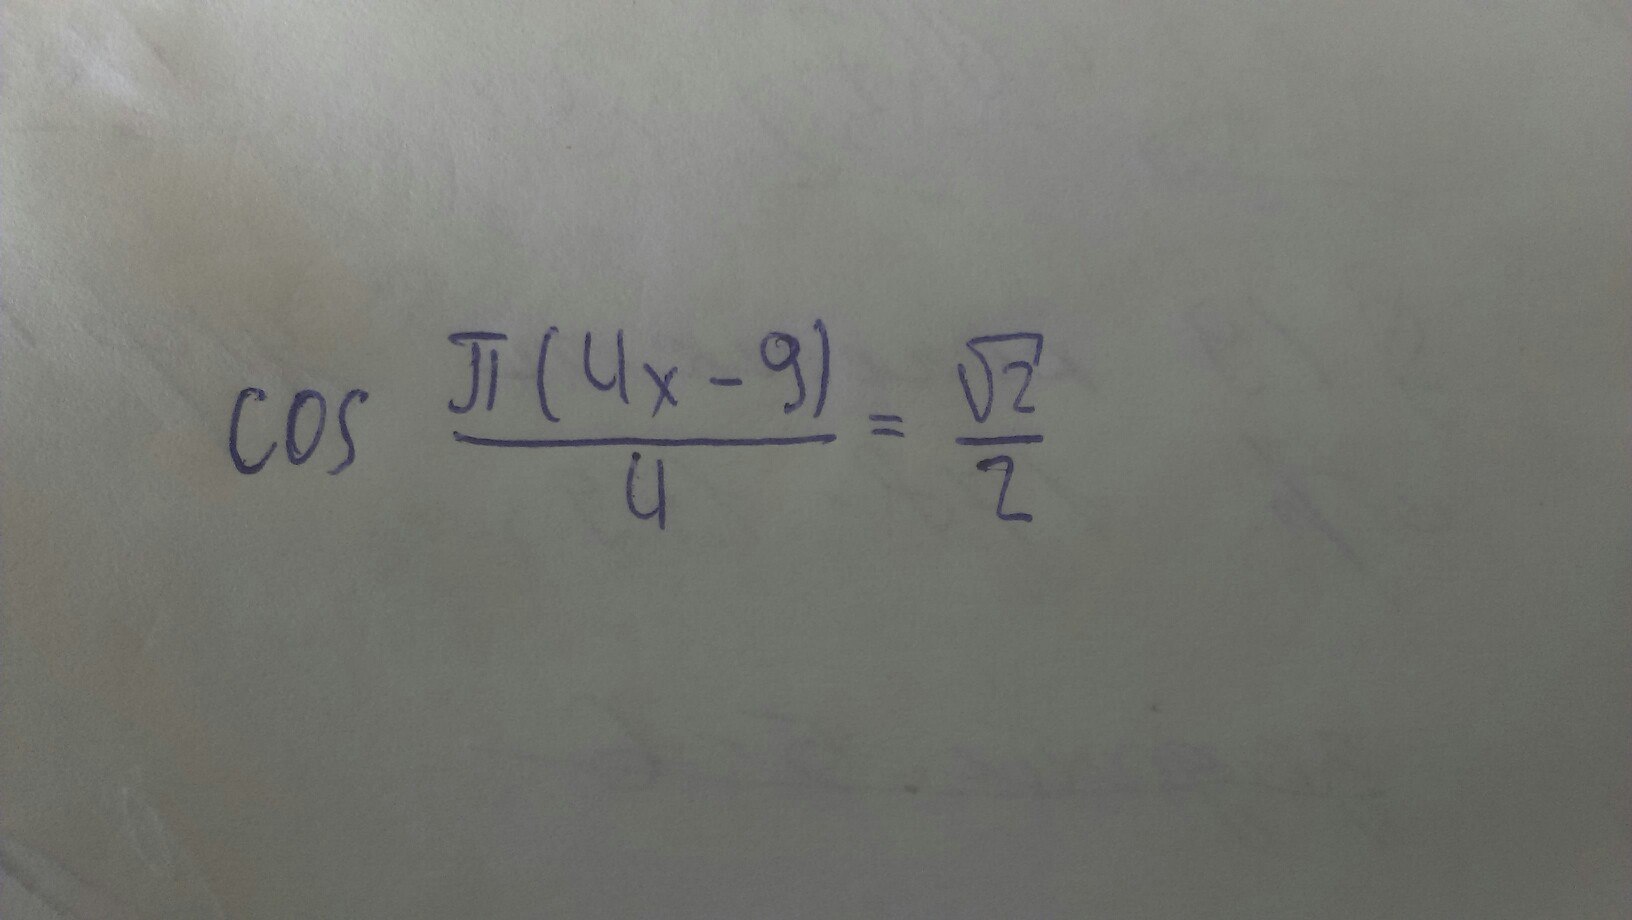 cos π(4x-9)/4 = √2/2